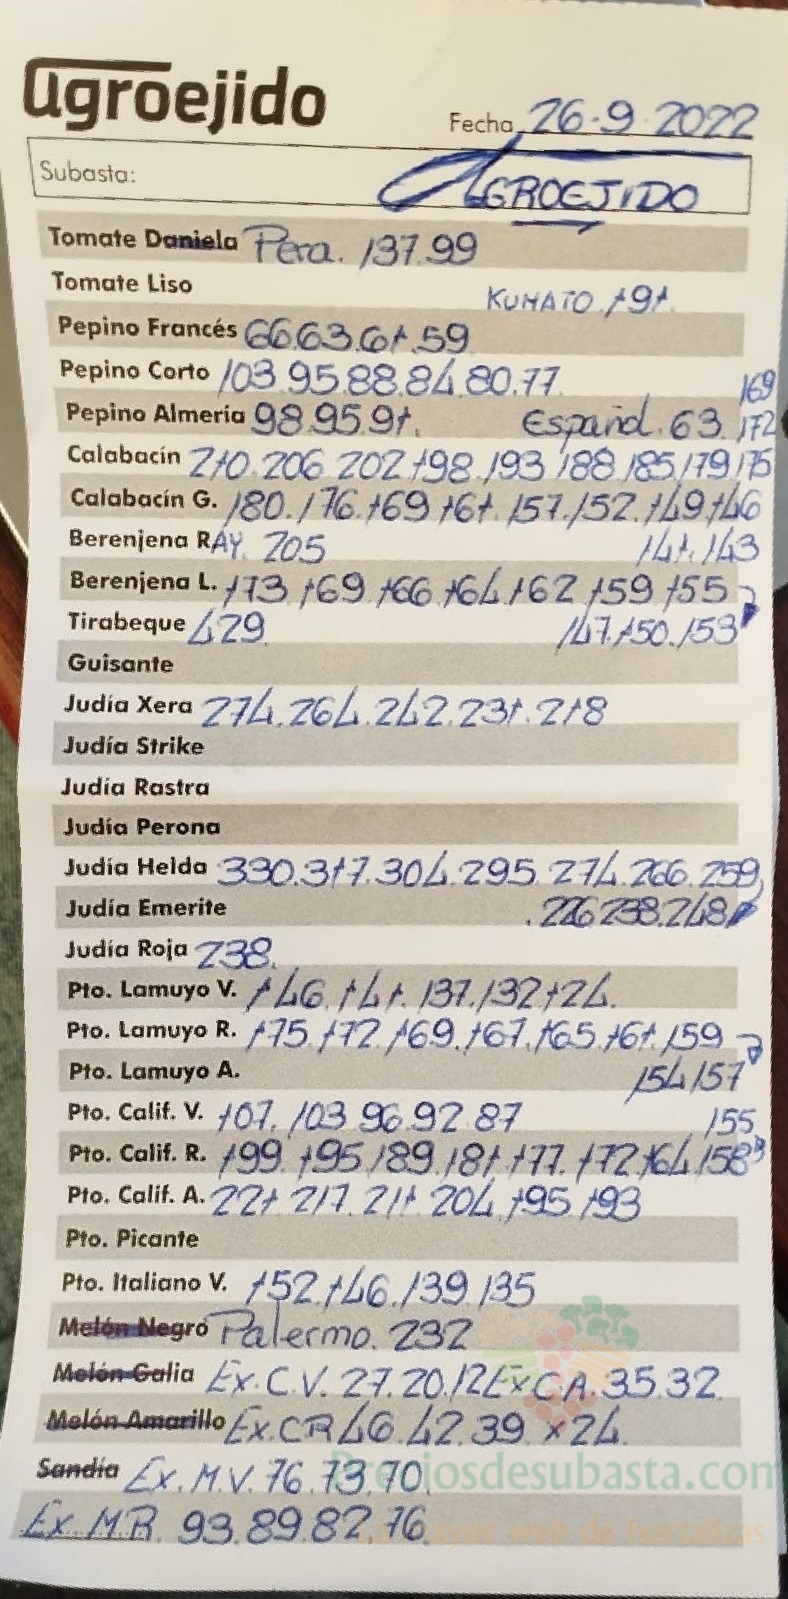 agroejido
Fecha 26-9-2022
Subasta: AGROEJIDO
Tomate Daniela Pera. 137.99
Tomate Liso KUMATO 191
Pepino Francés 66.63.61.59
Pepino Corto 103.95.88.84.80.77
169
Pepino Almería 98.95.91. Español. 63. 172
Calabacín 210.206.202.198.193.188.185.179.175
Calabacín G. 180.176.169.161.157.152.149.146
Berenjena RAY. 205 141.143
Berenjena L. 173.169.166.164.162.159.155
Tirabeque 429 147.150.153
Guisante
Judía Xera 274.264.242.231.218
Judía Strike
Judía Rastra
Judía Perona
Judía Helda 330.317.304.295.274.266.259
Judía Emerite .226.238.248
Judía Roja 238.
Pto. Lamuyo V. 146.141.137.132.124.
Pto. Lamuyo R. 175.172.169.167.165.161.159
Pto. Lamuyo A. 154.157
Pto. Calif. V. 107.103.96.92.87 155
Pto. Calif. R. 199.195.189.181.177.172.164.158
Pto. Calif. A. 221.217.211.204.195.193
Pto. Picante
Pto. Italiano V. 152.146.139.135
Melón Negro Palermo. 232
Melón Galia Ex.C.V. 27.20.12 Ex C.A. 35.32
Melón Amarillo Ex.CR 46.42.39 x 24.
Sandía Ex.M.V. 76.73.70.
Preciosdesubasta.com
Ex.M.R. 93.89.82.76.
web de hortalizas